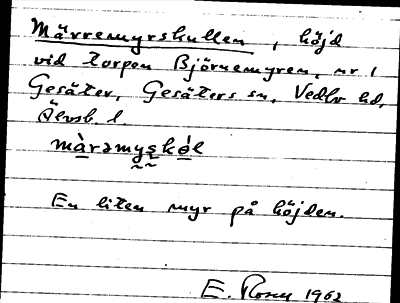 Märremyrskullen, höjd
vid torpen Björnemyren, nr 1
Gesäter, Gesäters sn, Vedbo hd,
Älvsb. l.
màrəmyskól
En liten myr på höjden.
E. Rosen 1962